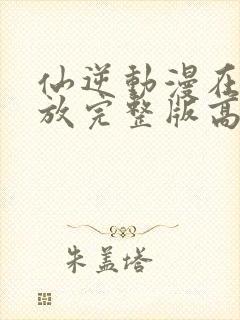 仙逆動漫在
放完整版高
朱盖塔